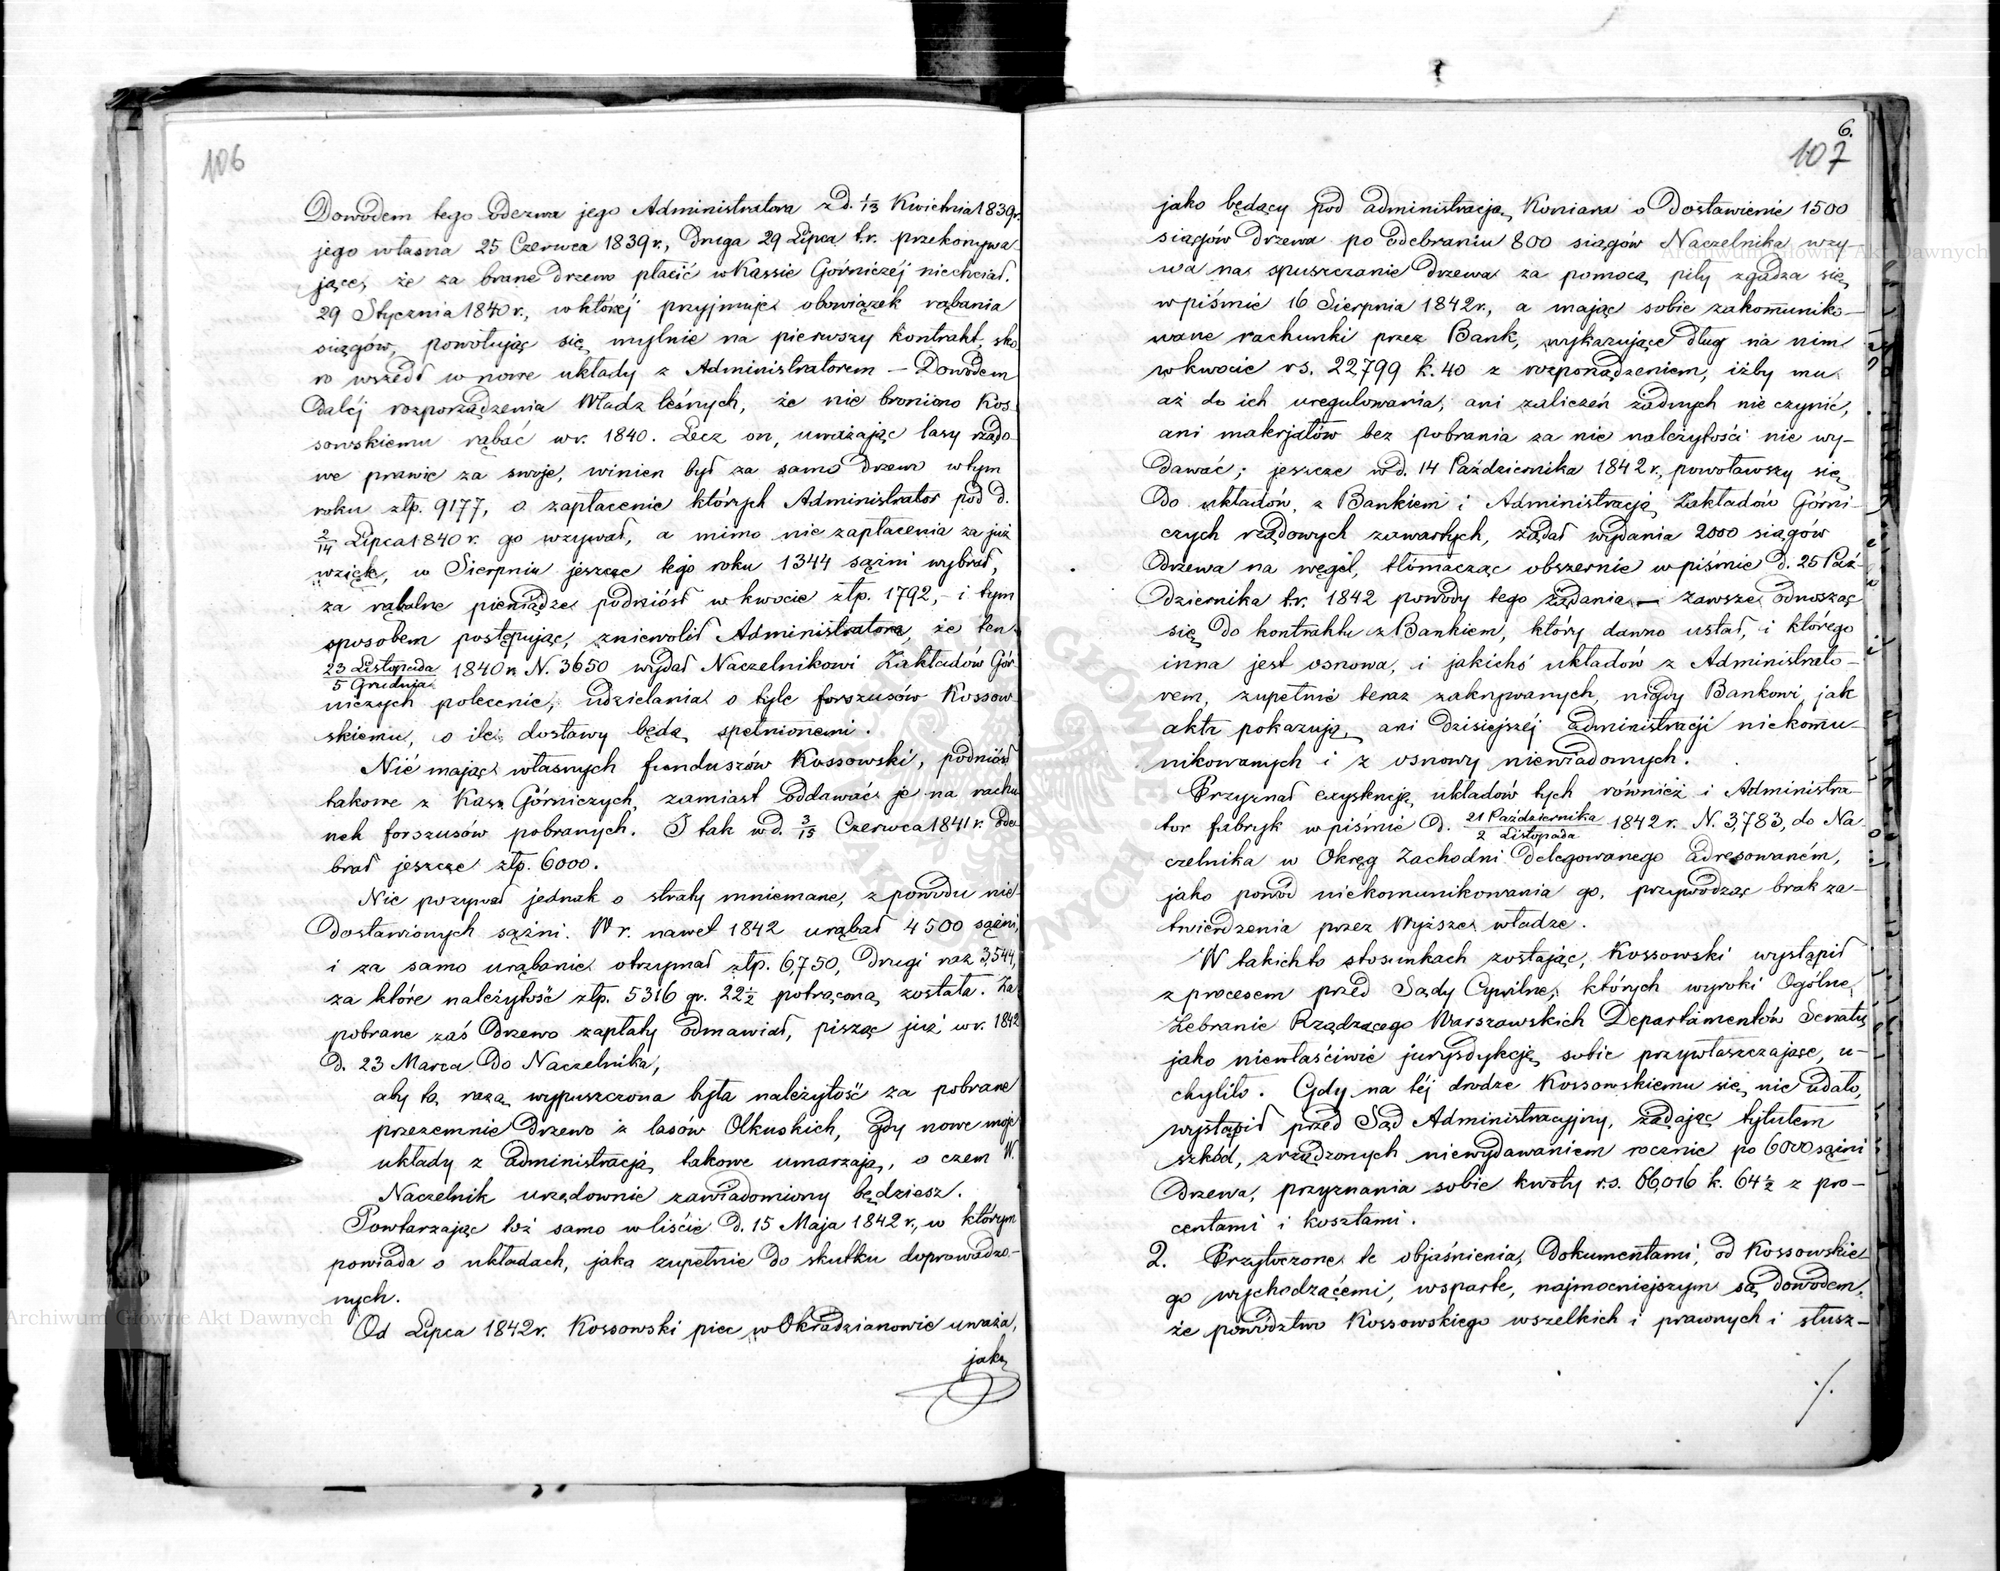 106
Dowodem tego odezwa jego Administratora z d. 1/13 Kwietnia 1839 r.
jego własna 25 Czerwca 1839 r., druga 29 Lipca t.r. przekonywa-
jące, że za brane drzewo płacić w Kassie Górniczéj niechciał.
29 Stycznia 1840 r., w któréj przyjmuje obowiązek rąbania
siągów, powołując się mylnie na pierwszy kontrakt, sko-
ro wszedł w nowe układy z Administratorem — Dowodem
daléj rozporządzenia Władz leśnych, że nie broniono Kos-
sowskiemu rąbać w r. 1840. Lecz on, uważając lasy rządo-
we prawie za swoje, winien był za samo drzewo w tym
roku złp. 9177, o zapłacenie których Administrator pod d.
2/14 Lipca 1840 r. go wzywał, a mimo nie zapłacenia za już
wzięte, w Sierpniu jeszcze tego roku 1344 sążni wybrał,
za rąbalne pieniądze podniósł w kwocie złp. 1792, - i tym
sposobem postępując, zniewolił Administratora, że ten
23 Listopada / 5 Grudnia 1840 r. N. 3650 wydał Naczelnikowi Zakładów Gór-
niczych polecenie, udzielania o tyle forszusów Kossow-
skiemu, o ile dostawy będą spełnionemi.
Nie mając własnych funduszów Kossowski, podniósł
takowe z Kass Górniczych, zamiast oddawać je na rachu-
nek forszusów pobranych. I tak w d. 3/15 Czerwca 1841 r. ode-
brał jeszcze złp. 6000.
Nie pozywał jednak o straty mniemane, z powodu nie-
dostawionych sążni. W r. nawet 1842 urąbał 4500 sążni,
i za samo urąbanie otrzymał złp. 6,750, drugi raz 3,544,
za które należytość złp. 5316 gr. 22½ potrąconą została. Za
pobrane zaś drzewo zapłaty odmawiał, pisząc już w r. 1842
d. 23 Marca do Naczelnika,
aby tą razą wypuszczona była należytość za pobrane
przezemnie drzewo z lasów Olkuskich, gdy nowe moje
układy z administracją takowe umarzają, o czem W.
Naczelnik urzędownie zawiadomiony będziesz.
Powtarzając toż samo w liście d. 15 Maja 1842 r., w którym
powiada o układach, jako zupełnie do skutku doprowadzo-
nych.
Od Lipca 1842 r. Kossowski piec w Okradzianowie uważa,
jako
6.
107
jako będący pod administracją Koniara o dostawienie 1500
siągów drzewa po odebraniu 800 siągów Naczelnika wzy-
wa na spuszczanie drzewa za pomocą piły zgadza się
w piśmie 16 Sierpnia 1842 r., a mając sobie zakomuniko-
wane rachunki przez Bank, wykazujące dług na nim
w kwocie rs. 22799 k. 40 z rozporządzeniem, iżby mu
aż do ich uregulowania, ani zaliczeń żadnych nie czynić,
ani materjałów bez pobrania za nie należytości nie wy-
dawać; jeszcze w d. 14 Października 1842 r., powoławszy się
do układów, z Bankiem i Administracją Zakładów Górni-
czych rządowych zawartych, żądał wydania 2000 siągów
drzewa na węgiel, tłómacząc obszernie w piśmie d. 25 Paź-
dziernika t.r. 1842 powody tego żądania — zawsze odnosząc
się do kontraktu z Bankiem, który dawno ustał, i którego
inna jest osnowa, i jakichś układów z Administrato-
rem, zupełnie teraz zakrywanych, nigdy Bankowi, jak
akta pokazują, ani dzisiejszéj administracji niekomu-
nikowanych i z osnowy niewiadomych.
Przyznał exystencję układów tych również i Administra-
tor fabryk w piśmie d. 21 Października / 2 Listopada 1842 r. N. 3,783, do Na
czelnika w Okręg Zachodni delegowanego adresowaném,
jako powód niekomunikowania go, przywodząc brak za-
twierdzenia przez Wyższe władze.
W takichto stosunkach zostając, Kossowski wystąpił
z procesem przed Sądy Cywilne, których wyroki Ogólne
Zebranie Rządzącego Warszawskich Departamentów Senatu,
jako niewłaściwie juryzdykcję sobie przywłaszczające, u-
chyliło. Gdy na téj drodze Kossowskiemu się nie udało,
wystąpił przed Sąd Administracyjny, żądając tytułem
szkód, zrządzonych niewydawaniem rocznie po 6000 sążni
drzewa, przyznania sobie kwoty rs. 66,016 k. 64½ z pro-
centami i kosztami.
2. Przytoczone te objaśnienia, dokumentami, od Kossowskie-
go wychodzącémi, wsparte, najmocniejszym są dowodem,
że powództwo Kossowskiego wszelkich i prawnych i słusz-
./.
Archiwum Główne Akt Dawnych
Archiwum Główne Akt Dawnych